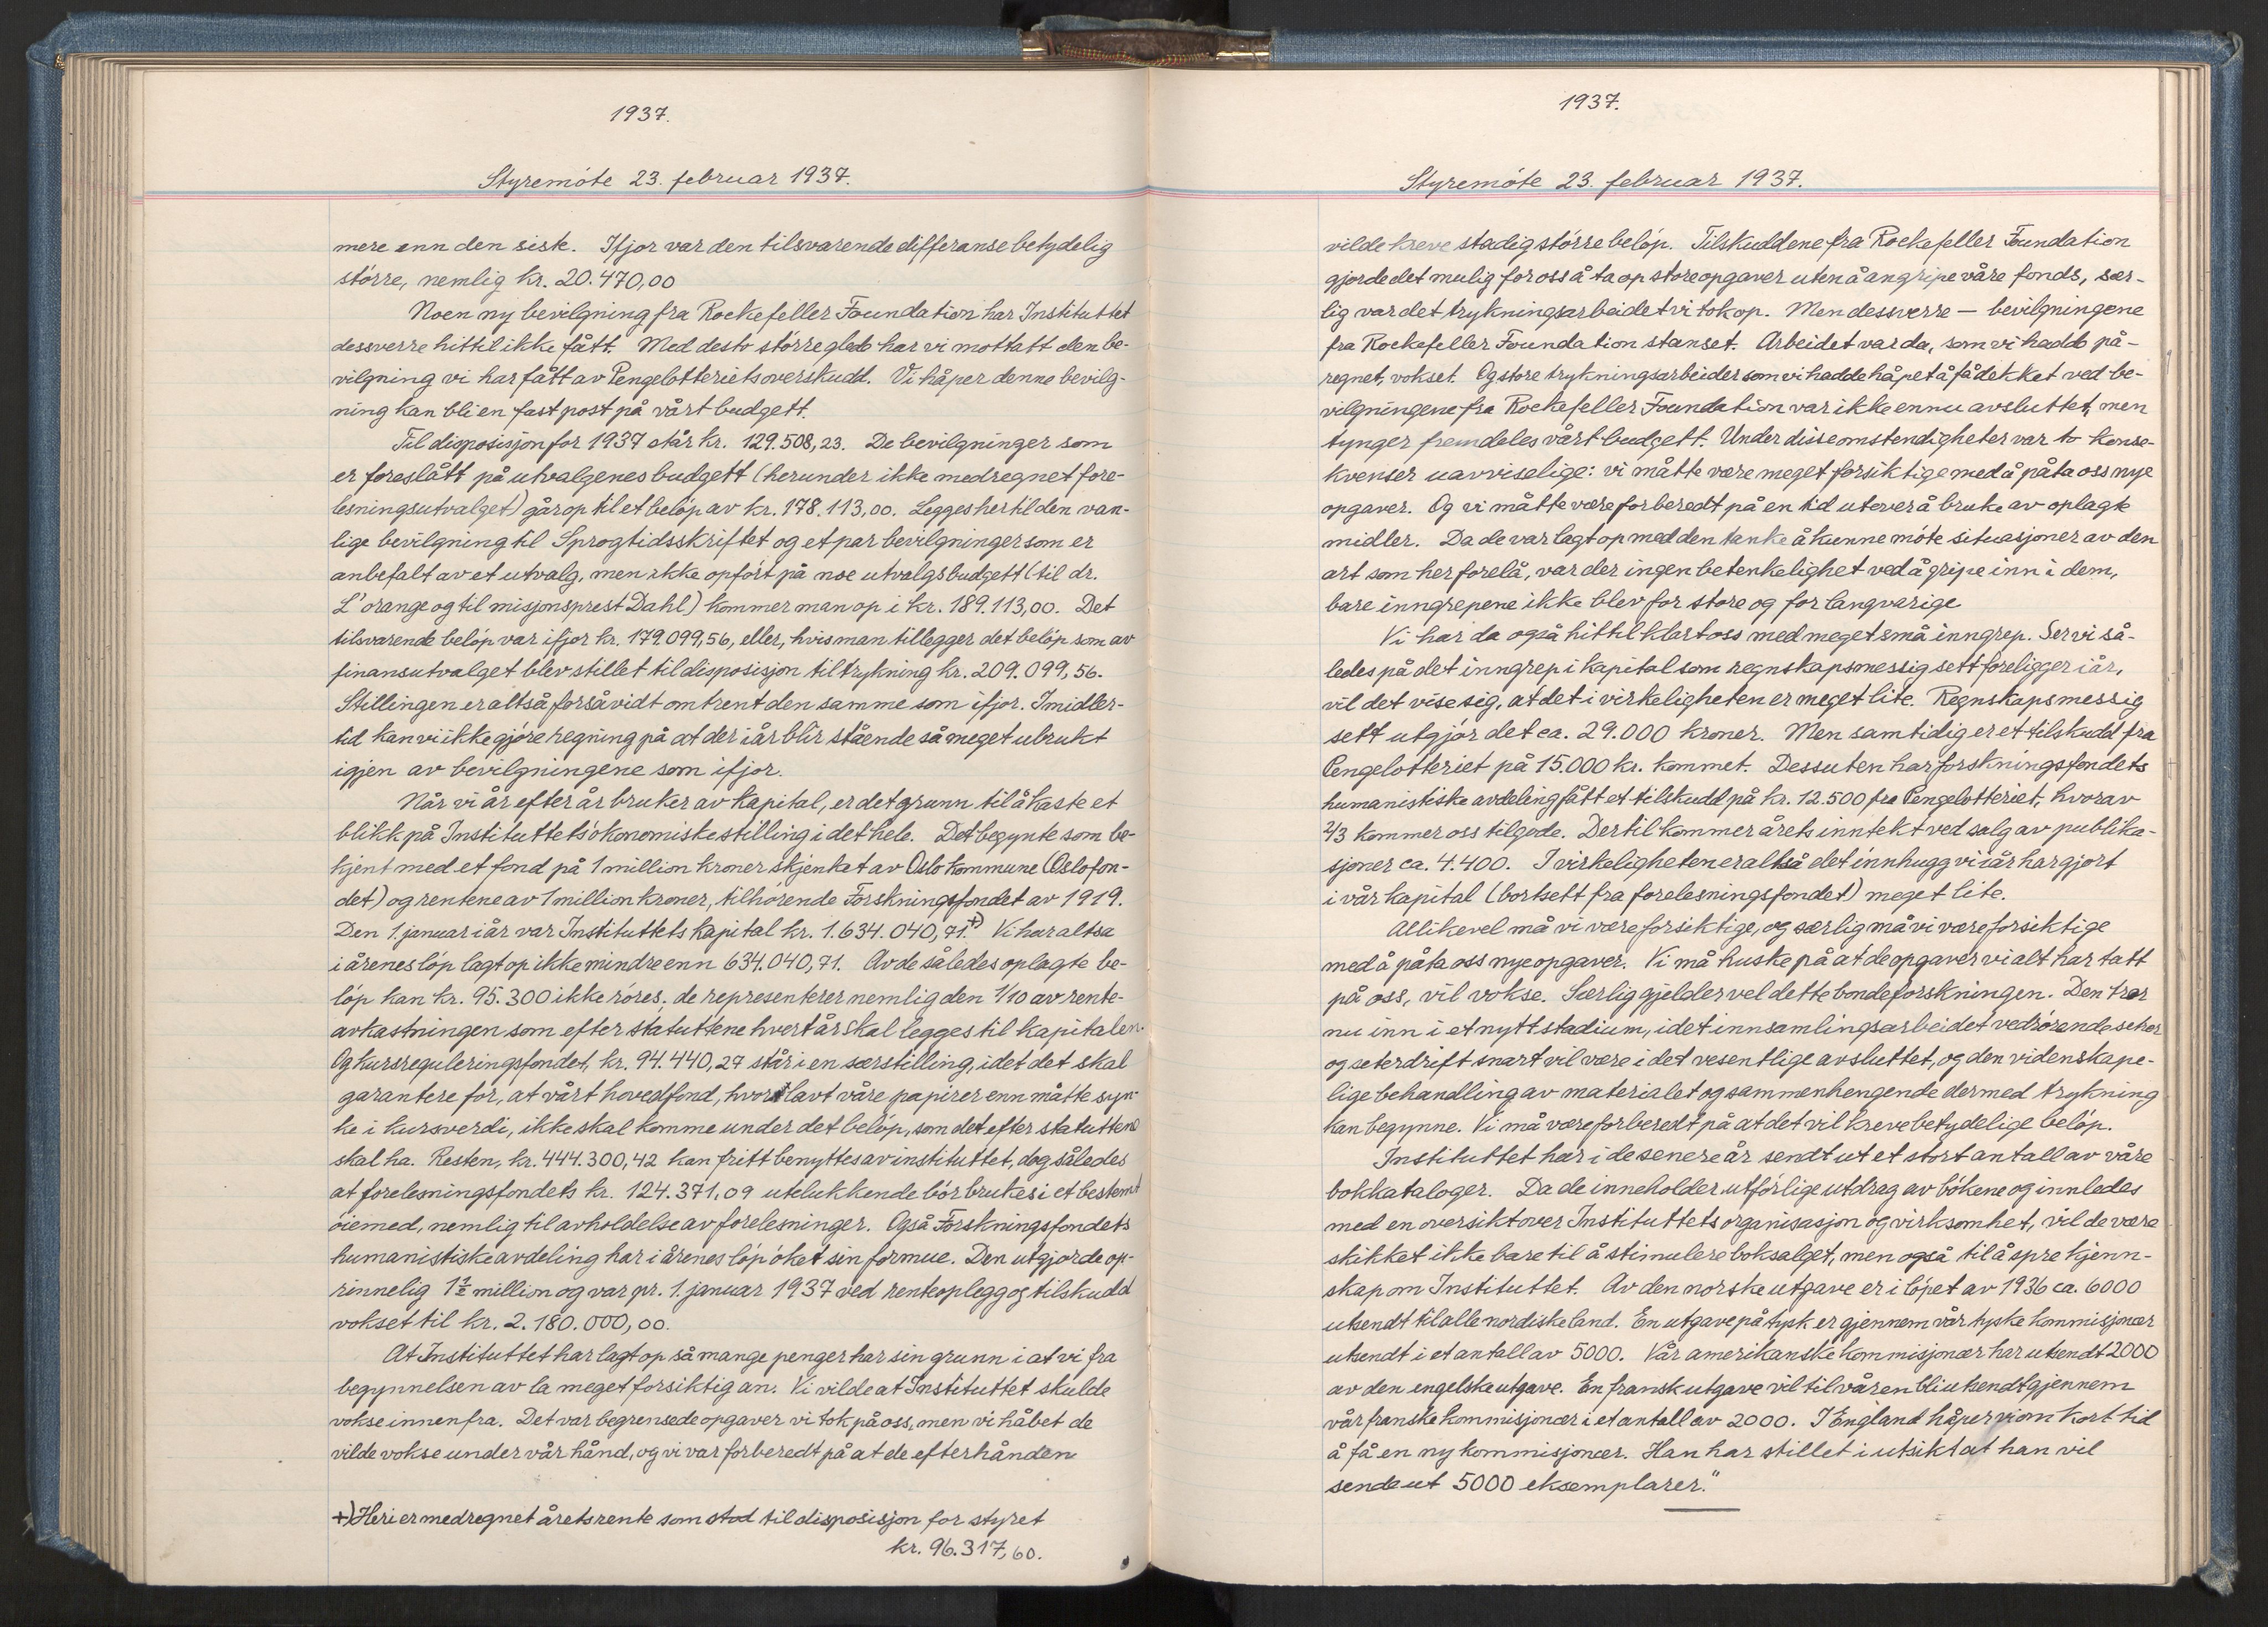 1937.
Styremöte 23. februar 1937.
mere enn den siste. Ifjor var den tilsvarende differanse betydelig
större, nemlig kr. 20.470,00
Noen ny bevilgning fra Rockefeller Foundation har Instituttet
dessverre hittil ikke fått. Med desto större glede har vi mottatt den be-
vilgning vi har fått av Pengelotteriets overskudd. Vi håper denne bevilg-
ning kan bli en fast post på vårt budgett.
Til disposisjon for 1937 står kr. 129.508,23. De bevilgninger som
er foreslått på utvalgenes budgett (herunder ikke medregnet fore-
lesningsutvalget) går op til et belöp av kr. 178.113,00. Legges hertil den van-
lige bevilgning til Sprogtidsskriftet og et par bevilgninger som er
anbefalt av et utvalg, men ikke opfört på noe utvalgsbudgett (til dr.
L'orange og til misjonsprest Dahl) kommer man op i kr. 189.113,00. Det
tilsvarende belöp var ifjor kr. 179.099,56, eller, hvis man tillegger det belöp som av
finansutvalget blev stillet til disposisjon til trykning kr. 209.099,56.
Stillingen er altså forsåvidt omtrent den samme som ifjor. Imidler-
tid kan vi ikke gjöre regning på at der iår blir stående så meget ubrukt
igjen av bevilgningene som ifjor.
Når vi år efter år bruker av kapital, er det grunn til å kaste et
blikk på Instituttets ökonomiske stilling i det hele. Det begynte som be-
kjent med et fond på 1 million kroner skjenket av Oslo kommune (Oslofon-
det) og rentene av 1 million kroner, tilhörende Forskningsfondet av 1919.
Den 1. januar iår var Instituttets kapital kr. 1.634.040,71.+) Vi har altsa
i årenes löp lagt op ikke mindre enn 634.040,71. Av de således oplagte be-
löp kan kr. 95.300 ikke röres; de representerer nemlig den 1/10 av rente-
avkastningen som efter statuttene hvert år skal legges til kapitalen.
Og kursreguleringsfondet, kr. 94.440,27 står i en særstilling, idet det skal
garantere for, at vårt hovedfond, hvor lavt våre papirer enn måtte syn-
ke i kursverdi, ikke skal komme under det belöp, som det efter statuttene
skal ha. Resten, kr. 444.300,42 kan fritt benyttes av instituttet, dog således
at forelesningsfondets kr. 124.371,09 utelukkende bör brukes i et bestemt
öiemed, nemlig til avholdelse av forelesninger. Også Forskningsfondets
humanistiske avdeling har i årenes löp öket sin formue. Den utgjorde op-
rinnelig 1½ million og var pr. 1. januar 1937 ved renteoplegg og tilskudd
vokset til kr. 2.180.000,00.
At Instituttet har lagt op så mange penger har sin grunn i at vi fra
begynnelsen av la meget forsiktig an. Vi vilde at Instituttet skulde
vokse innenfra. Det var begrensede opgaver vi tok på oss, men vi håbet de
vilde vokse under vår hånd, og vi var forberedt på at de efterhånden
+) Heri er medregnet årets rente som stod til disposisjon for styret
kr. 96.317,60.
1937.
Styremöte 23. februar 1937.
vilde kreve stadig större belöp. Tilskuddene fra Rockefeller Foundation
gjorde det mulig for oss å ta op store opgaver uten å angripe våre fonds, sær-
lig var det trykningsarbeidet vi tok op. Men dessverre — bevilgningene
fra Rockefeller Foundation stanset. Arbeidet var da, som vi hadde på-
regnet, vokset. Og store trykningsarbeider som vi hadde håpet å få dekket ved be-
vilgningene fra Rockefeller Foundation var ikke ennu avsluttet, men
tynger fremdeles vårt budgett. Under disse omstendigheter var to konse-
kvenser uavviselige: vi måtte være meget forsiktige med å påta oss nye
opgaver. Og vi måtte være forberedt på en tid utover å bruke av oplagte
midler. Da de var lagt op med den tanke å kunne möte situasjoner av den
art som her forelå, var der ingen betenkelighet ved å gripe inn i dem,
bare inngrepene ikke blev for store og for langvarige.
Vi har da også hittil klart oss med meget små inngrep. Ser vi så-
ledes på det inngrep i kapital som regnskapsmessig sett foreligger iår,
vil det vise sig, at det i virkeligheten er meget lite. Regnskapsmessig
sett utgjör det ca. 29.000 kroner. Men samtidig er et tilskudd fra
Pengelotteriet på 15.000 kr. kommet. Dessuten har forskningsfondets
humanistiske avdeling fått et tilskudd på kr. 12.500 fra Pengelotteriet, hvorav
2/3 kommer oss tilgode. Dertil kommer årets inntekt ved salg av publika-
sjoner ca. 4.400. I virkeligheten er altså det innhugg vi iår har gjort
i vår kapital (bortsett fra forelesningsfondet) meget lite.
Allikevel må vi være forsiktige, og særlig må vi være forsiktige
med å påta oss nye opgaver. Vi må huske på at de opgaver vi alt har tatt
på oss, vil vokse. Særlig gjelder vel dette bondeforskningen. Den trer
nu inn i et nytt stadium, idet innsamlingsarbeidet vedrörende seter
og seterdrift snart vil være i det vesentlige avsluttet, og den videnskape-
lige behandling av materialet og sammenhengende dermed trykning
kan begynne. Vi må være forberedt på at det vil kreve betydelige belöp.
Instituttet har i de senere år sendt ut et stort antall av våre
bokkataloger. Da de inneholder utförlige utdrag av bökene og innledes
med en oversikt over Instituttets organisasjon og virksomhet, vil de være
skikket ikke bare til å stimulere boksalget, men også til å spre kjenn-
skap om Instituttet. Av den norske utgave er i löpet av 1936 ca. 6000
utsendt til alle nordiske land. En utgave på tysk er gjennem vår tyske kommisjonær
utsendt i et antall av 5000. Vår amerikanske kommisjonær har utsendt 2000
av den engelske utgave. En fransk utgave vil til våren bli utsendt gjennem
vår franske kommisjonær i et antall av 2000. I England håper vi om kort tid
å få en ny kommisjonær. Han har stillet i utsikt at han vil
sende ut 5000 eksemplarer."